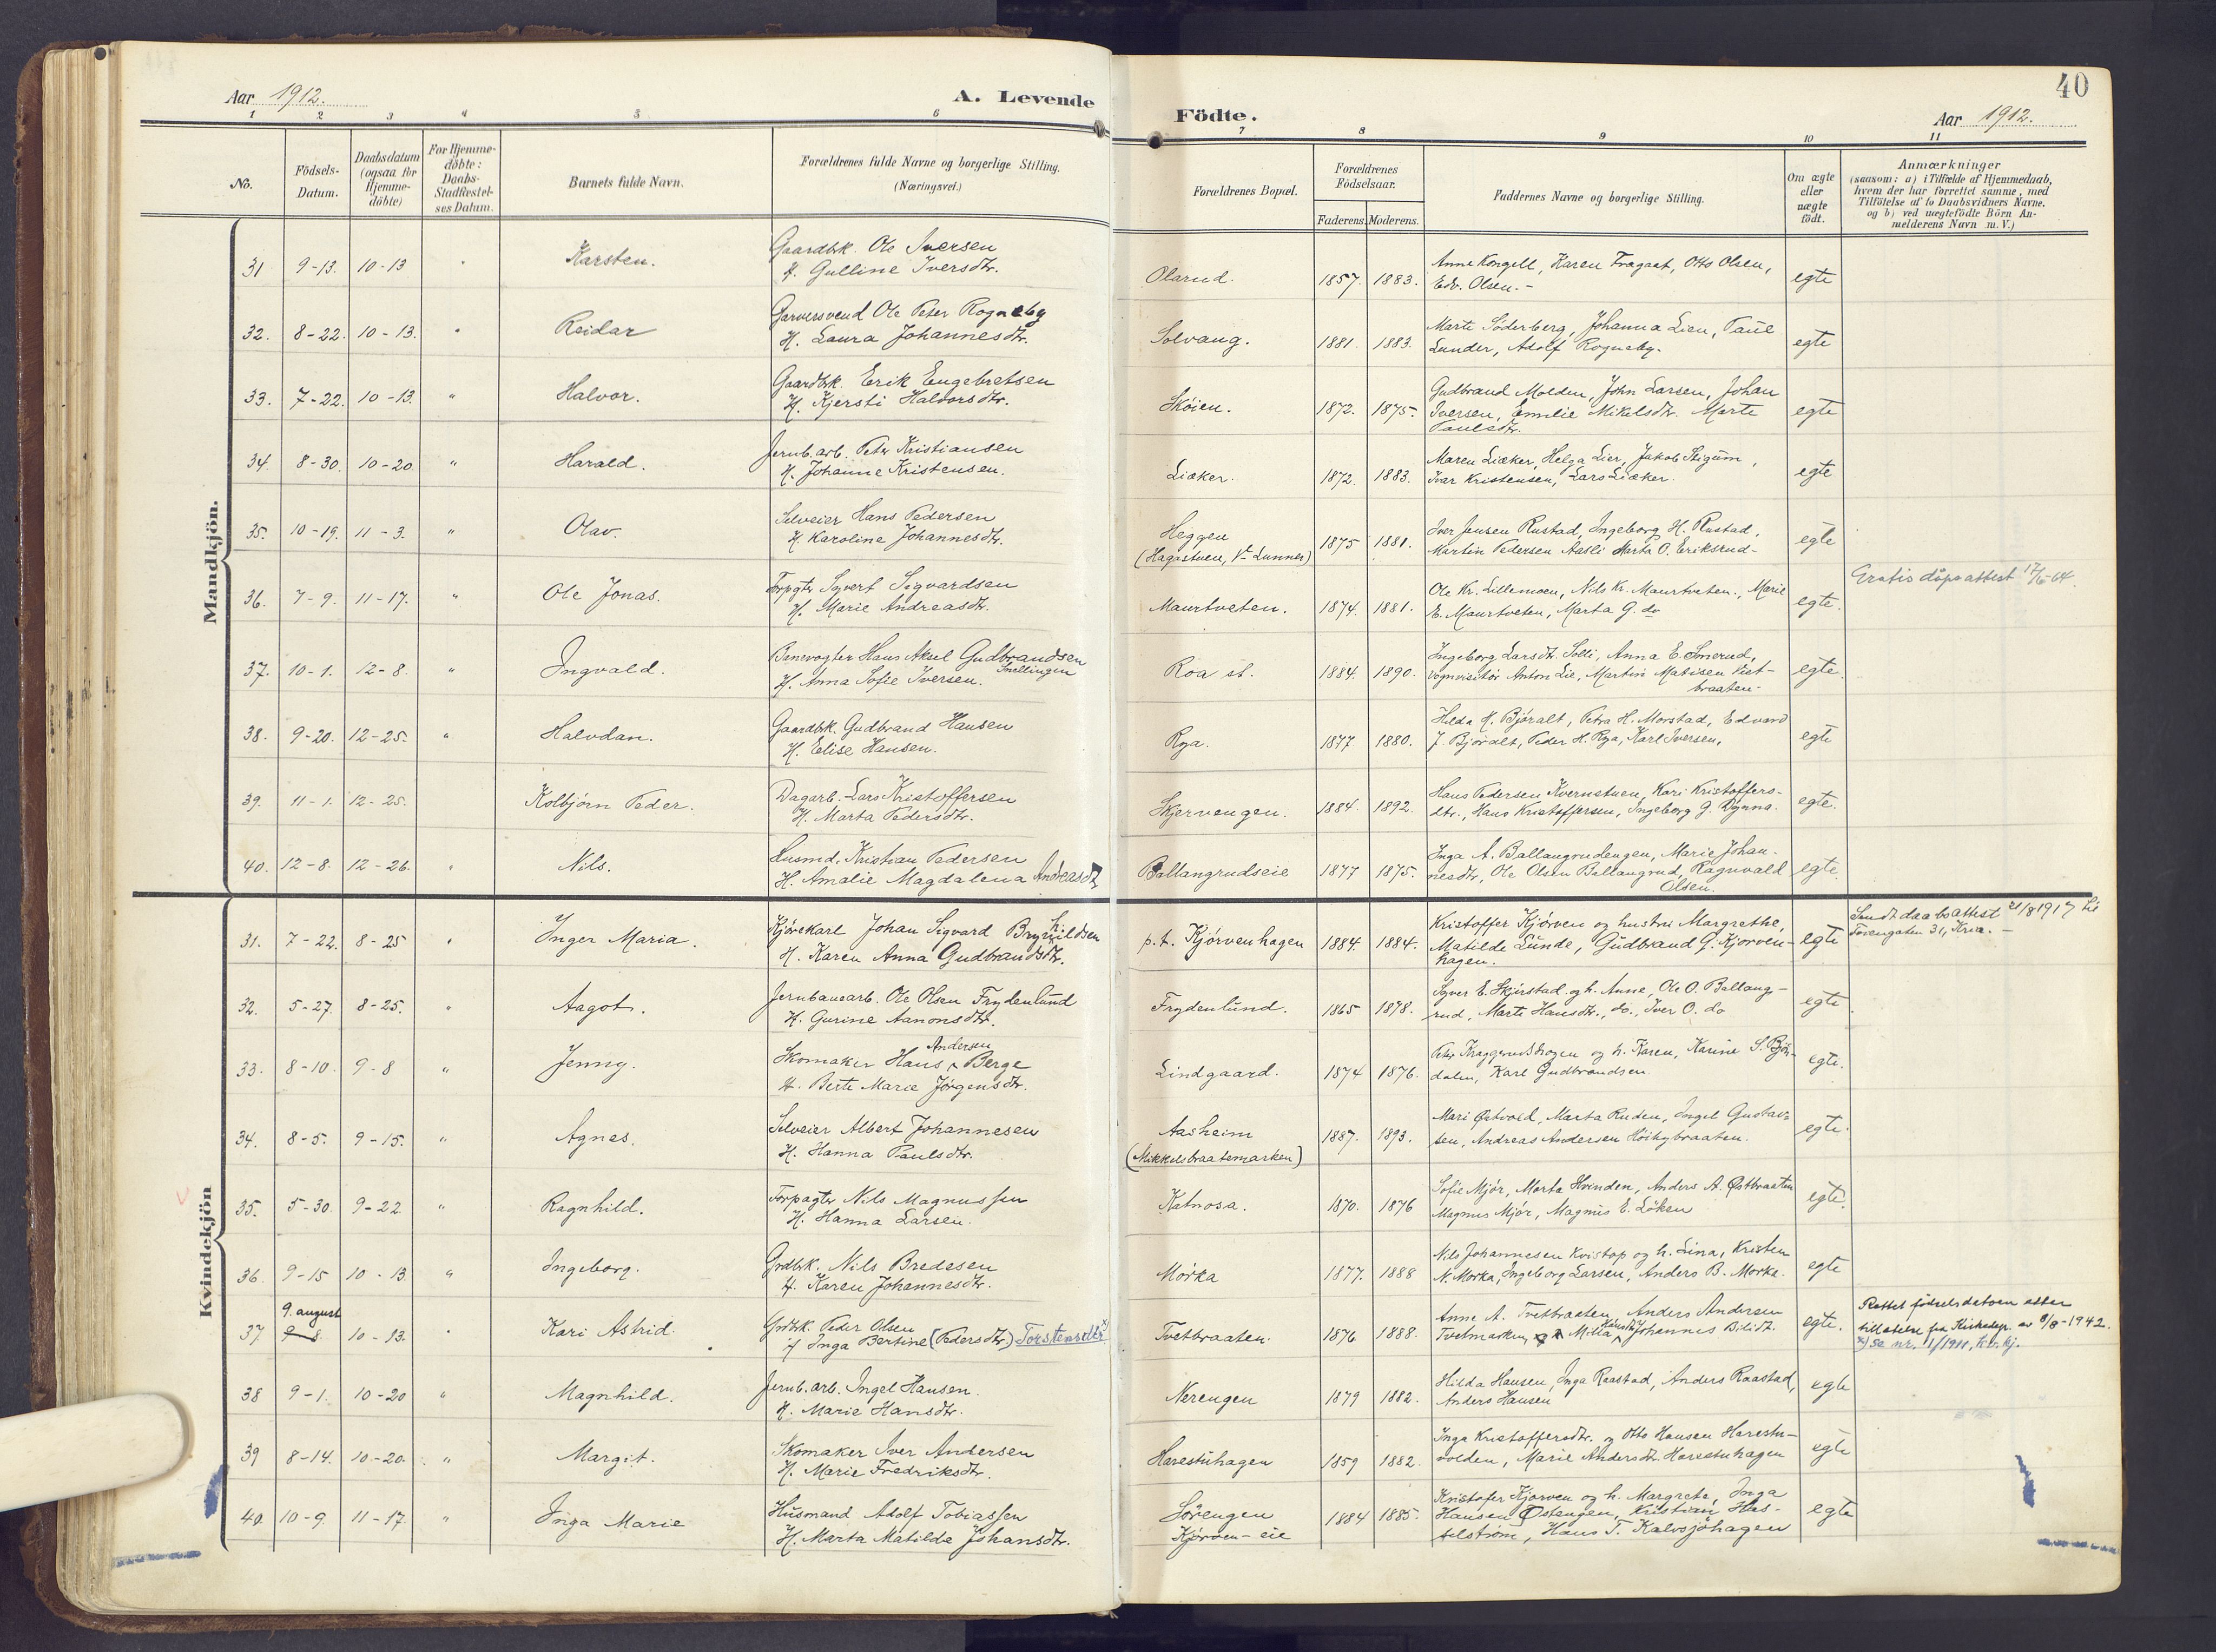 40
Aar 1912.
A. Levende Födte.
Aar 1912.
1 2 3 4 5 6 7 8 9 10 11
No.
Födsels-Datum.
Daabsdatum (ogsaa for Hjemme-döbte)
For Hjemme-döbte: Daabs-Stadfæstel-ses Datum.
Barnets fulde Navn.
Forældrenes fulde Navne og borgerlige Stilling. (Næringsvei.)
Forældrenes Bopæl.
Forældrenes Födselsaar.
Faderens. Moderens.
Faddernes Navne og borgerlige Stilling.
Om ægte eller uægte födt.
Anmærkninger
(saasom: a) i Tilfælde af Hjemmedaab,
hvem der har forrettet samme, med
Tilföielse af to Daabsvidners Navne.
og b) ved uægtefödte Börn An-
melderens Navn m. V.)
Mandkjön.
31 9-13. 10-13 " Karsten. Gaardbrk. Ole Iversen
H. Gulline Iversdtr. Olarud. 1857. 1883. Anne Kongell, Karen Fragaat, Otto Olsen,
Edv. Olsen.- egte
32. 8-22. 10-13. " Reidar Garversvend Ole Peter Rogneby
H. Laura Johannesdtr. Solvang. 1881. 1883. Marte Söderberg, Johanna Lien, Paul
Lunder, Adolf Rogneby. egte
33. 7-22. 10-13. " Halvor. Gaardbrk. Erik Engebretsen
H. Kjersti Halvorsdtr. Sköien. 1872. 1875. Gudbrand Molden, John Larsen, Johan
Iversen, Emilie Mikelsdtr. Marte
Paulsdtr. egte
34. 8-30. 10-20 " Harald. Jernb.arb. Peter Kristiansen
H. Johanne Kristensen. Liæker. 1872. 1883. Maren Liæker, Helga Lier, Jakob Stigum,
Ivar Kristensen, Lars Liæker. egte
35. 10-19. 11-3. " Olav. Selveier Hans Pedersen
H. Karoline Johannesdtr. Heggen
(Hagastuen, V- Lunner) 1875 1881. Iver Jensen Rustad, Ingeborg H. Rustad,
Martin Pedersen Aasli Marta O. Eriksrud- egte
36. 7-9. 11-17. " Ole Jonas. Forpgtr Syvert Sigvardsen
H. Marie Andreasdtr. Maurtveten. 1874. 1881. Ole Kr. Lillemoen, Nils Kr. Maurtveten., Marie
E. Maurtveten, Marta G. do egte. Gratis dåpsattest 17/6-64.
37. 10-1. 12-8. " Ingvald. Banevogter Hans Aksel Gudbrandsen
Snellingen
H. Anna Sofie Iversen. Roa st. 1884. 1890. Ingeborg Larsdtr. Solli, Anna E. Smerud,
Vognvisitör Anton Lie, Martin Matisen Viet-
braaten- egte.
38. 9-20. 12-25. " Halvdan. Gaardbk. Gudbrand Hansen
H. Elise Hansen. Rya. 1877 1880. Hilda H. Björalt, Petra H. Morstad, Edvard
J. Björalt, Peder H. Rya, Karl Iversen, egte
39. 11-1. 12-25. Kolbjörn Peder. Dagarb. Lars Kristoffersen
H. Marta Pedersdtr. Skjervengen. 1884. 1892. Hans Pedersen Kvernstuen, Kari Kristoffers-
dtr., Hans Kristoffersen, Ingeborg G. Dynna. egte.
40. 12-8. 12-26. " Nils. Husmd. Kristian Pedersen
H. Amalie Magdalena Andreasdtr Ballangrudseie 1877 1875. Inga A. Ballangrudengen, Marie Johan-
nesdtr, Ole Olsen Ballangrud, Ragnvald
Olsen. egte.
Kvindekjön
31. 7-22. 8-25 " Inger Maria. Kjörekarl Johan Sigvard Brynhildsen
H. Karen Anna Gudbrandsdtr. p.t. Kjörvenhagen 1884. 1884. Kristoffer Kjörven og hustru Margrethe,
Matilde Lunde, Gudbrand G. Kjorven-
hagen. egte Sendt daabsattest 21/8 1917 til
31, Kria.-
32. 5-27. 8-25. " Aagot. Jernbanearb. Ole Olsen Frydenlund
H. Gurine Aanonsdtr. Frydenlund. 1865 1878. Syver E. Skjerstad og h. Anne, Ole O. Ballang-
rud, Marte Hansdtr., do., Iver O. do egte
33. 8-10. 9-8 " Jenny. Skomaker Hans Andersen Berge
H. Berte Marie Jörgensdtr. Lindgaard. 1874 1876. Peter Kraggerudshagen og h. Karen, Karine S. Björ-
dalen, Karl Gudbrandsen egte.
34. 8-5. 9-15. " Agnes. Selveier Albert Johannesen
H. Hanna Paulsdtr. Aasheim
(Mikkelsbraatemarken) 1887. 1893. Mari Østvold, Marta Ruden, Ingel Gustav-
sen, Andreas Andersen Höibybraaten. egte.
35. 5-30. 9-22. " Ragnhild. Forpagter Nils Magnussen
H. Hanna Larsen. Katnosa. 1870. 1876 Sofie Mjör, Marta Hvinden, Anders A. Østbraaten
Magnus Mjör, Magnus E. Löken egte.
36. 9-15 10-13. " Ingeborg. Grdbk. Nils Bredesen
H. Karen Johannesdtr. Mörka 1877. 1888 Nils Johannesen Kvistop og h. Lina, Kristen
N. Morka, Ingeborg Larsen, Anders B. Morka. egte
9. august
37 9-8. 10-13. " Kari Astrid. Grdbk. Peder Olsen
H Inga Bertine (Pedersdtr.) Torstensdtr x) Tvetbraaten. 1876 1888. Anne A. Tvetbraaten, Anders Andersen
Tvetmarken, Milla Hansdtr, Johannes Bilidt. egte. Rettet fødselsdatoen etter
tillatelse fra Kirkedep. av 8/8-1942.
x) Se nr. 1/1911, kv.kj.
38 9-1. 10-20 " Magnhild. Jernb.arb. Ingel Hansen.
H. Marie Hansdtr. Nerengen 1879 1882. Hilda Hansen, Inga Raastad, Anders Raastad,
Anders Hansen egte
39 8-14. 10-20. " Margit. Skomaker Iver Andersen
H. Marie Fredriksdtr. Harestuhagen 1859 1882. Inga Kristoffersdtr. og Otto Hansen Harestu-
volden, Marie Andersdtr. Harestuhagen egte
40. 10-9. 11-17. " Inga Marie Husmand Adolf Tobiassen
H. Marta Matilde Johansdtr. Sörengen
Kjörven-eie 1884 1885. Kristofer Kjorven og h. Margrete, Inga
Hansen Østengen, Kristian Has-
selström, Hans T. Kalvsjöhagen egte